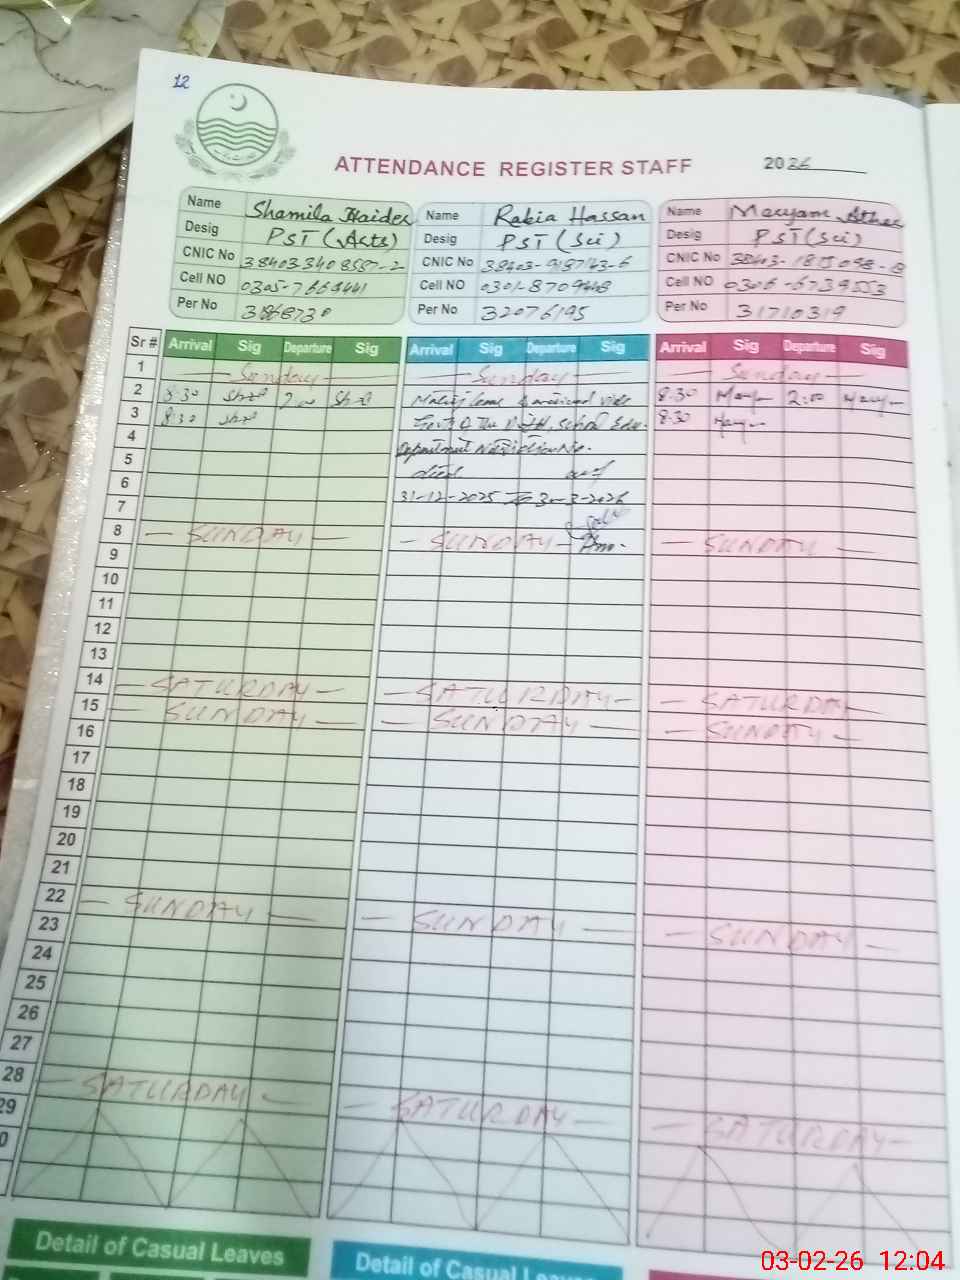 12
ATTENDANCE REGISTER STAFF 2026
Name Shamila Haider
Desig PST (Arts)
CNIC No
Cell NO
Per No
Name Rabia Hassan
Desig PST (Sci)
CNIC No 38403-9187143-6
Cell NO 0301-8709448
Per No 32076195
Name Maryam Ather
Desig PST (Sci)
CNIC No
Cell NO 0306-6739553
Per No 31710319
Sr # Arrival Sig Departure Sig Arrival Sig Departure Sig Arrival Sig Departure Sig
1 Sunday Sunday Sunday
2 8:30 2:00 8:30 2:00
3 8:30 Govt of The School Edu. 8:30
4 Department
5
6 31-12-2025 To 30-3-2026
7
8 SUNDAY SUNDAY SUNDAY
9
10
11
12
13
14 SATURDAY SATURDAY SATURDAY
15 SUNDAY SUNDAY SUNDAY
16
17
18
19
20
21
22 SUNDAY SUNDAY SUNDAY
23
24
25
26
27
28 SATURDAY SATURDAY SATURDAY
29
0
Detail of Casual Leaves Detail of Casual
03-02-26 12:04